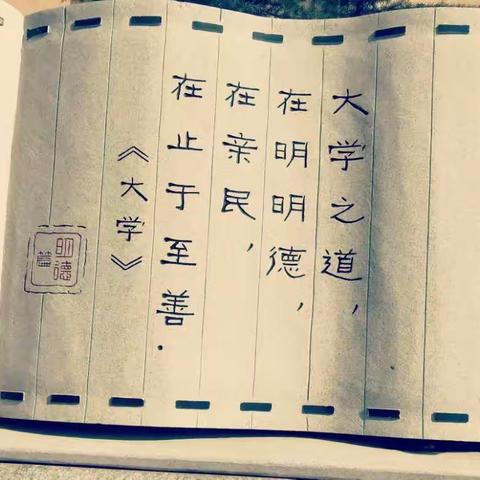 大学之道，
在明明德，
在亲民，
在止于至善.
《大学》
明德